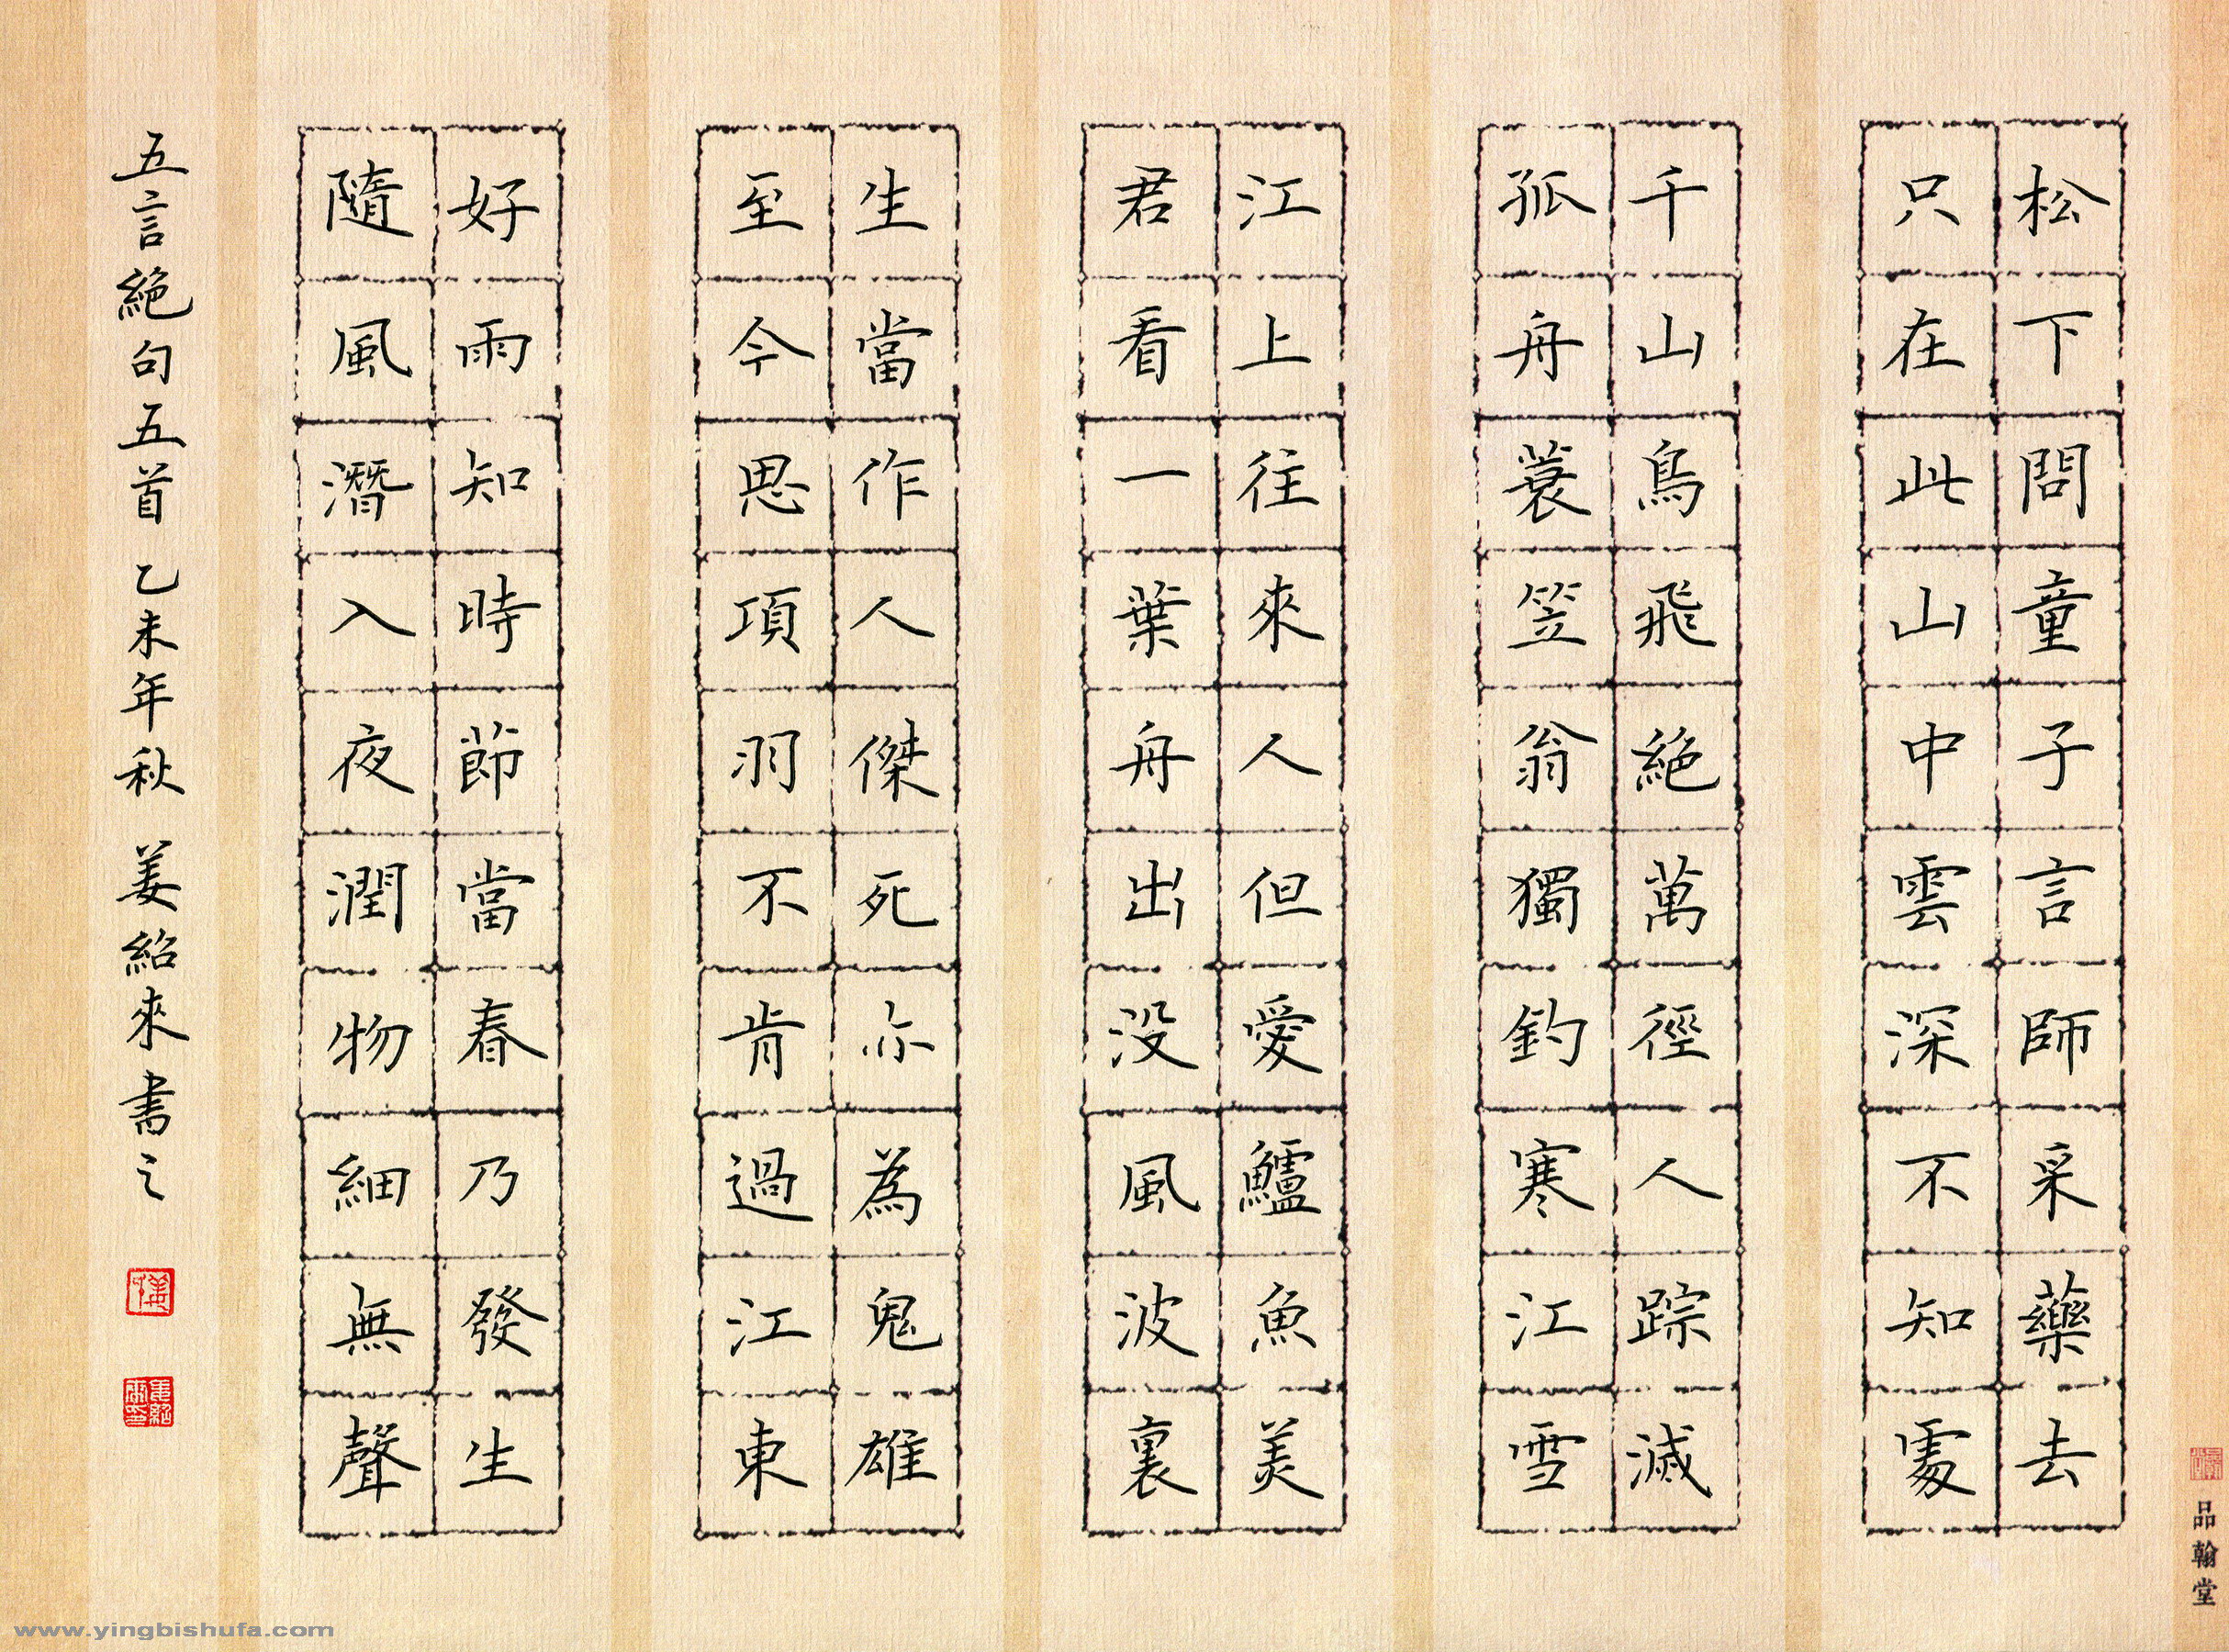 松下問童子言師采藥去
只在此山中雲深不知處
千山鳥飛絕萬徑人踪滅
孤舟蓑笠翁獨釣寒江雪
江上往來人但愛鱸魚美
君看一葉舟出没風波裏
生當作人傑死亦為鬼雄
至今思項羽不肯過江東
好雨知時節當春乃發生
隨風潛入夜潤物細無聲
五言絕句五首 乙未年秋 姜紹來書之
品翰堂
www.yingbishufa.com